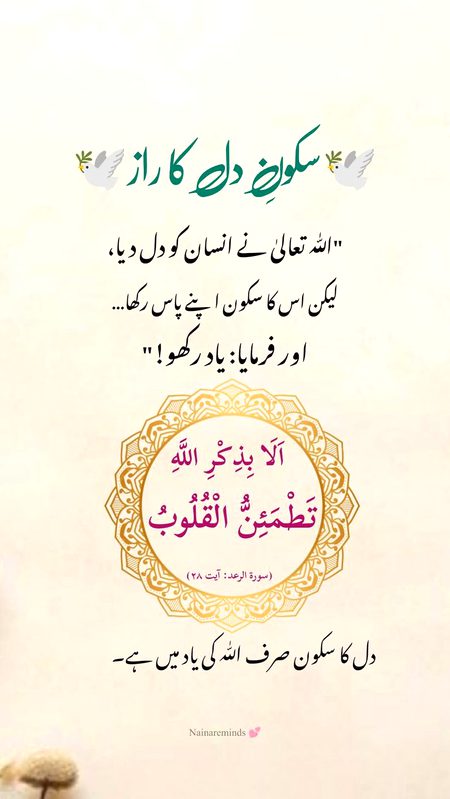 🕊️ سکونِ دل کا راز 🕊️
"اللہ تعالیٰ نے انسان کو دل دیا،
لیکن اس کا سکون اپنے پاس رکھا...
اور فرمایا: یاد رکھو!"
اَلَا بِذِكْرِ اللَّهِ
تَطْمَئِنُّ الْقُلُوبُ
(سورة الرعد: آیت ۲۸)
دل کا سکون صرف اللہ کی یاد میں ہے۔
Nainareminds 💕